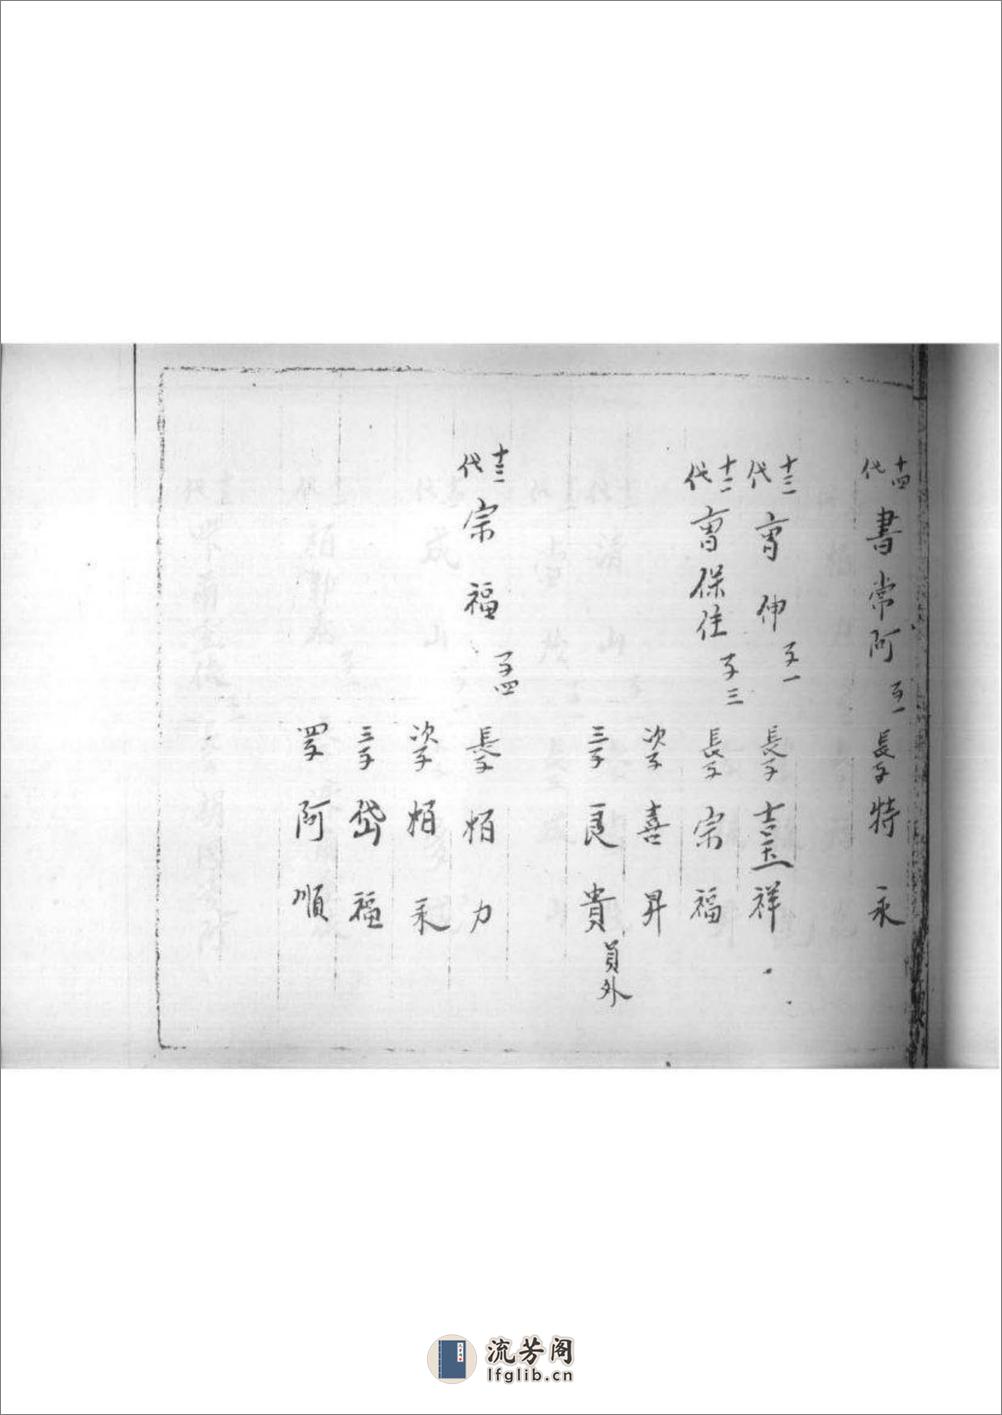 十四代 書常阿 子一 長子 特永
十三代 伸 子一 長子 吉玉祥
十二代 保住 子三 長子 宗福
次子 喜昇
三子 良貴 員外
十三代 宗福 子四 長子 栢力
次子 栢永
三子 岱福
四子 阿順
流芳阁
lfglib.cn